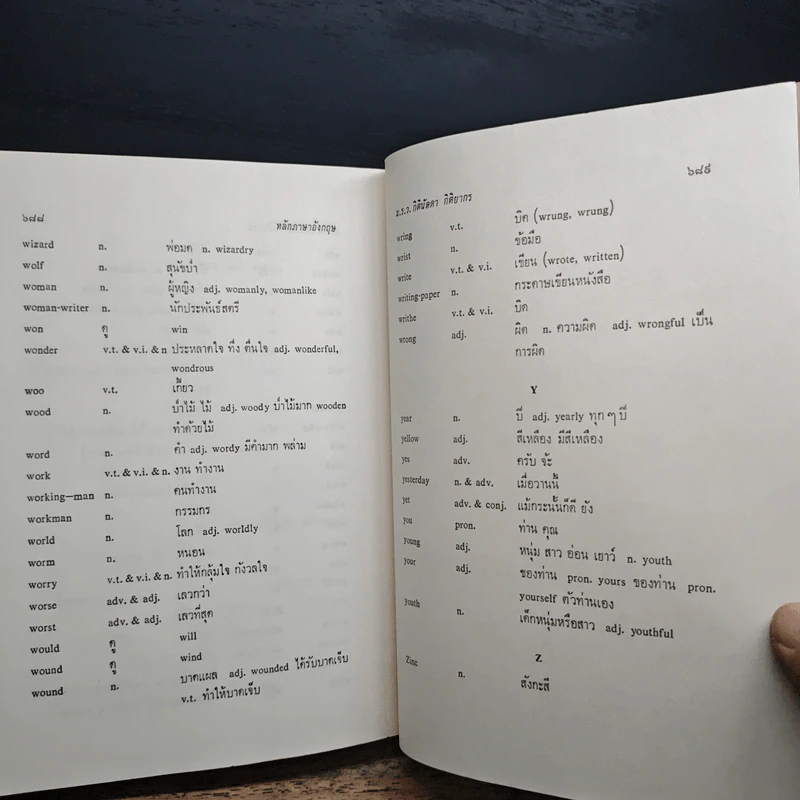 ๖๘๘
หลักภาษาอังกฤษ
wizard n. พ่อมด n. wizardry
wolf n. สุนัขป่า
woman n. ผู้หญิง adj. womanly, womanlike
woman-writer n. นักประพันธ์สตรี
won ดู win
wonder v.t. & v.i. & n ประหลาดใจ ทึ่ง ตื่นใจ adj. wonderful,
wondrous
woo v.t. เกี้ยว
wood n. ป่าไม้ ไม้ adj. woody ป่าไม้มาก wooden
ทำด้วยไม้
word n. คำ adj. wordy มีคำมาก พล่าม
work v.t. & v.i. & n. งาน ทำงาน
working—man n. คนทำงาน
workman n. กรรมกร
world n. โลก adj. worldly
worm n. หนอน
worry v.t. & v.i. & n. ทำให้กลุ้มใจ กังวลใจ
worse adv. & adj. เลวกว่า
worst adv. & adj. เลวที่สุด
would ดู will
wound ดู wind
wound n. บาดแผล adj. wounded ได้รับบาดเจ็บ
v.t. ทำให้บาดเจ็บ
๖๘๙
ม.ร.ว. กิตินัดดา กิติยากร
wring v.t. บิด (wrung, wrung)
wrist n. ข้อมือ
write v.t. & v.i. เขียน (wrote, written)
writing-paper n. กระดาษเขียนหนังสือ
writhe v.t. & v.i. บิด
wrong adj. ผิด n. ความผิด adj. wrongful เป็น
การผิด
Y
year n. ปี adj. yearly ทุก ๆ ปี
yellow adj. สีเหลือง มีสีเหลือง
yes adv. ครับ จ้ะ
yesterday n. & adv. เมื่อวานนี้
yet adv. & conj. แม้กระนั้นก็ดี ยัง
you pron. ท่าน คุณ
young adj. หนุ่ม สาว อ่อน เยาว์ n. youth
your adj. ของท่าน pron. yours ของท่าน pron.
yourself ตัวท่านเอง
youth n. เด็กหนุ่มหรือสาว adj. youthful
Z
Zinc n. สังกะสี